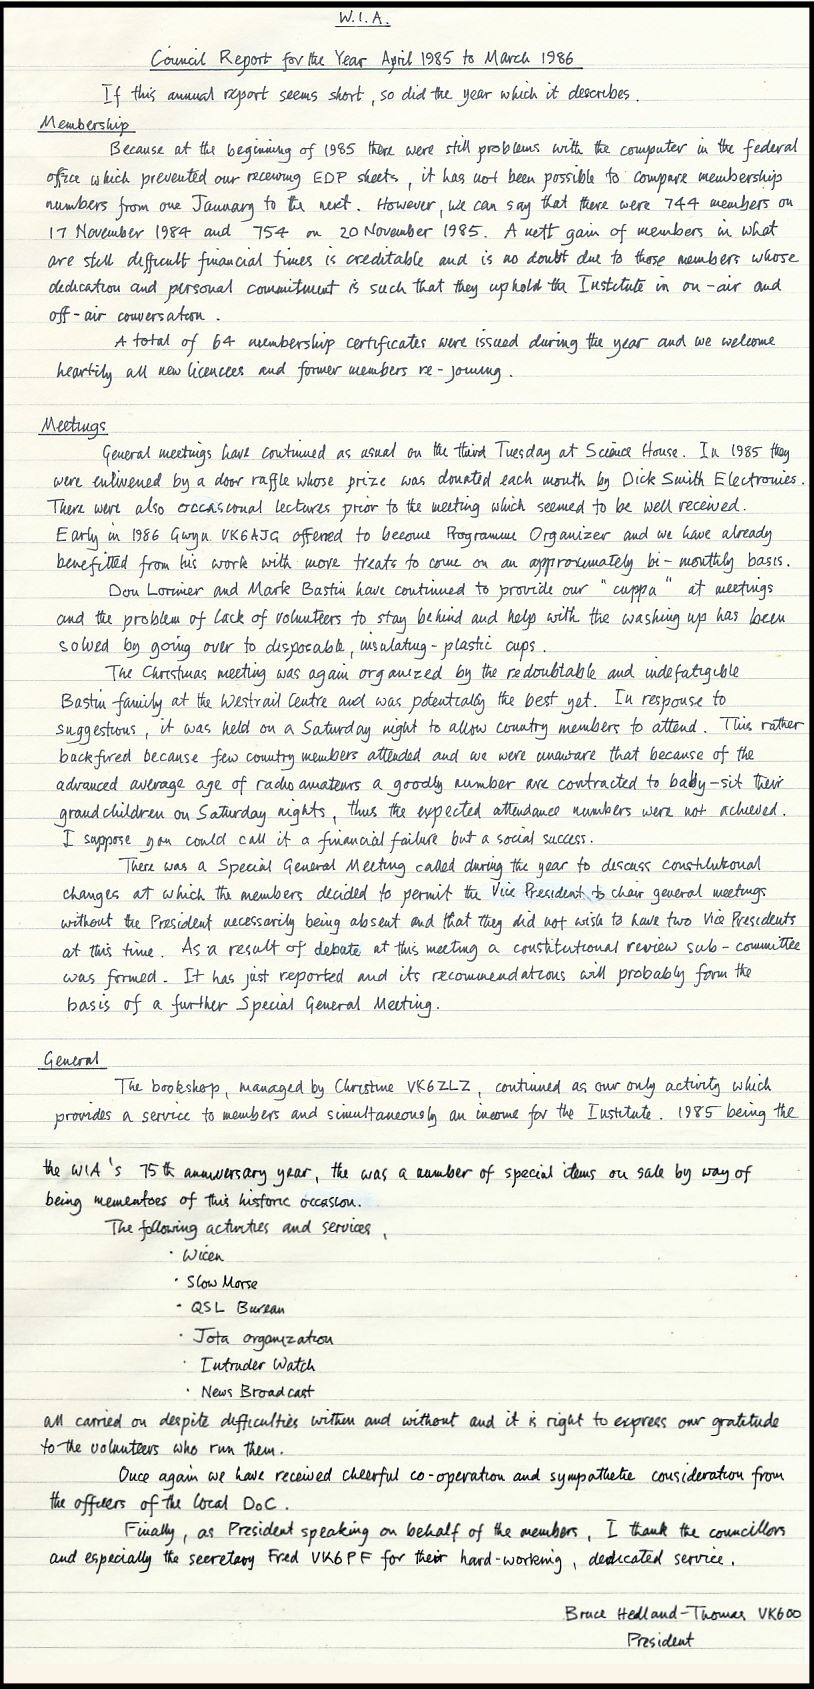 W.I.A.
Council Report for the Year April 1985 to March 1986
If this annual report seems short, so did the year which it describes.
Membership
Because at the beginning of 1985 there were still problems with the computer in the federal
office which prevented our receiving EDP sheets, it has not been possible to compare membership
numbers from one January to the next. However, we can say that there were 744 members on
17 November 1984 and 754 on 20 November 1985. A nett gain of members in what
are still difficult financial times is creditable and is no doubt due to those members whose
dedication and personal commitment is such that they uphold the Institute in on-air and
off-air conversation.
A total of 64 membership certificates were issued during the year and we welcome
heartily all new licencees and former members re-joining.
Meetings
General meetings have continued as usual on the third Tuesday at Science House. In 1985 they
were enlivened by a door raffle whose prize was donated each month by Dick Smith Electronics.
There were also occasional lectures prior to the meeting which seemed to be well received.
Early in 1986 Gwyn VK6AJG offered to become Programme Organizer and we have already
benefitted from his work with more treats to come on an approximately bi-monthly basis.
Don Lorimer and Mark Bastin have continued to provide our "cuppa" at meetings
and the problem of lack of volunteers to stay behind and help with the washing up has been
solved by going over to disposable, insulating-plastic cups.
The Christmas meeting was again organized by the redoubtable and indefatigible
Bastin family at the Westrail Centre and was potentially the best yet. In response to
suggestions, it was held on a Saturday night to allow country members to attend. This rather
backfired because few country members attended and we were unaware that because of the
advanced average age of radio amateurs a goodly number are contracted to baby-sit their
grandchildren on Saturday nights, thus the expected attendance numbers were not achieved.
I suppose you could call it a financial failure but a social success.
There was a Special General Meeting called during the year to discuss constitutional
changes at which the members decided to permit the Vice President to chair general meetings
without the President necessarily being absent and that they did not wish to have two Vice Presidents
at this time. As a result of debate at this meeting a constitutional review sub-committee
was formed. It has just reported and its recommendations will probably form the
basis of a further Special General Meeting.
General
The bookshop, managed by Christine VK6ZLZ, continued as our only activity which
provides a service to members and simultaneously an income for the Institute. 1985 being the
the WIA's 75th anniversary year, the was a number of special items on sale by way of
being mementoes of this historic occasion.
The following activities and services,
· Wicen
· Slow Morse
· QSL Bureau
· Jota organization
· Intruder Watch
· News Broadcast
all carried on despite difficulties within and without and it is right to express our gratitude
to the volunteers who run them.
Once again we have received cheerful co-operation and sympathetic consideration from
the officers of the local DoC.
Finally, as President speaking on behalf of the members, I thank the councillors
and especially the secretary Fred VK6PF for their hard-working, dedicated service.
Bruce Hedland-Thomas VK6OO
President